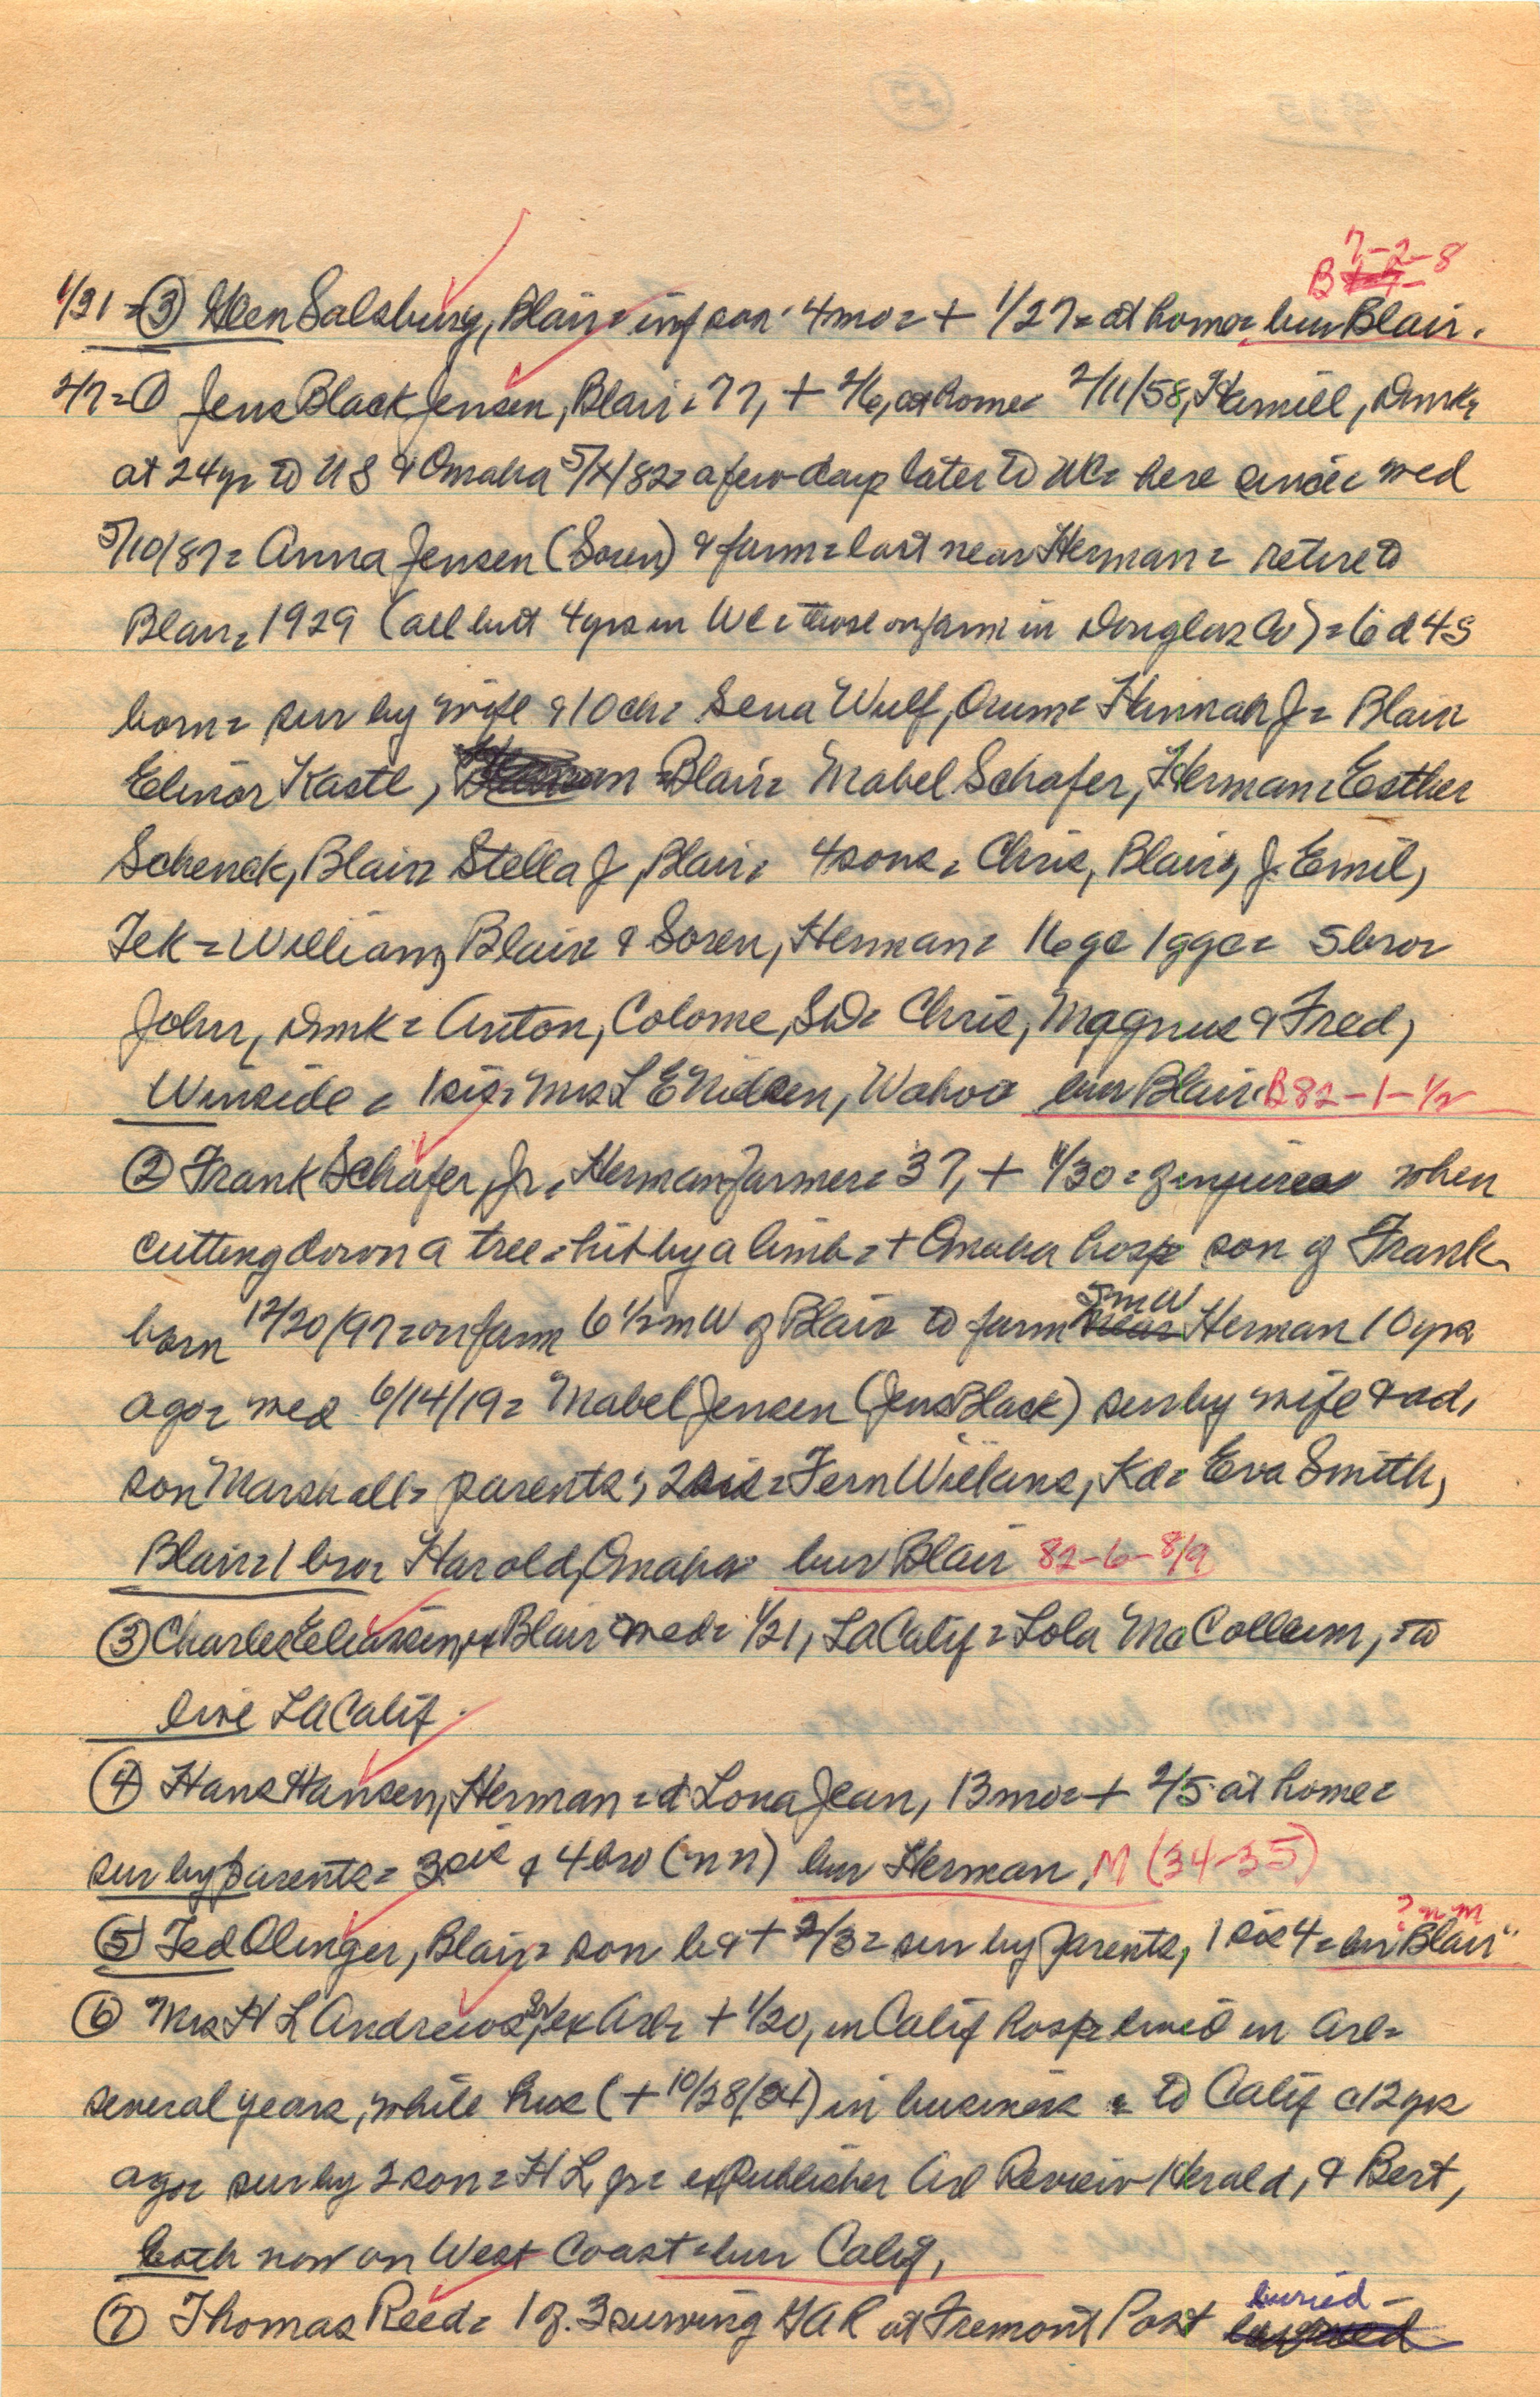 7-2-8
B
1/31 = ③ Glen Salsburg, Blair = inf son 4mo = + 1/27 = at home = bur Blair.
2/7 = ① Jens Black Jensen, Blair = 77, + 2/6, at home = 2/11/58, Denmk =
at 24yr to US & Omaha 5/4/82 = a few days later to WC = here since = med
5/10/87 = Anna Jensen (Soren) & farm = last near Herman = retire to
Blair = 1929 (all but 4yrs in WC = those on farm in Douglas Co) = 6d 4s
born = sur by wife & 10ch = Sena Wulf, Orum = Hannah J = Blair
Elinor Kastl, Blair = Mabel Schafer, Herman = Esther
Schenck, Blair = Stella J, Blair = 4 sons = Chris, Blair, J. Emil,
Tek = William, Blair & Soren, Herman = 16gc 1ggc = 5bro =
John, Dmk = Anton, Colome, SD = Chris, Magnus & Fred,
Winside = 1 sis = Mrs L E Nielsen, Wahoo bur Blair B82-1-1/2
② Frank Schafer, Jr., Herman farmer = 37, + 1/30 = of injuries when
cutting down a tree = hit by a limb = + Omaha hosp son of Frank
born 12/20/97 = on farm 6 1/2 m W of Blair to farm 5mW Herman 10yrs
ago = med 6/14/19 = Mabel Jensen (Jens Black) sur by wife & ad,
son Marshall = parents, 2 sis = Fern Wilkins, Kd = Eva Smith,
Blair = 1 bro = Harold, Omaha bur Blair 82-6-8/9
③ Charles Eliassen, ex Blair med = 1/21, LA Calif = Lola McCollum, = to
live LA Calif.
④ Hans Hansen, Herman = d Lona Jean, 13mo = + 2/5 at home =
sur by parents = 3 sis & 4 bro (nn) bur Herman, M (34-35)
? nm
⑤ Ted Olinger, Blair = son b & + 2/3 = sur by parents, 1 sis 4 = bur "Blair"
⑥ Mrs H L Andrews Sr, ex Arl = + 1/20, in Calif hosp = lived in Arl =
several years, while hus (+ 10/28/34) in business = to Calif c12yrs
ago = sur by 2 son = H L, jr = ex Publisher Arl Review Herald, & Bert,
both now on West Coast = bur Calif,
⑦ Thomas Reed = 1 of 3 surving GAR at Fremont Post buried -